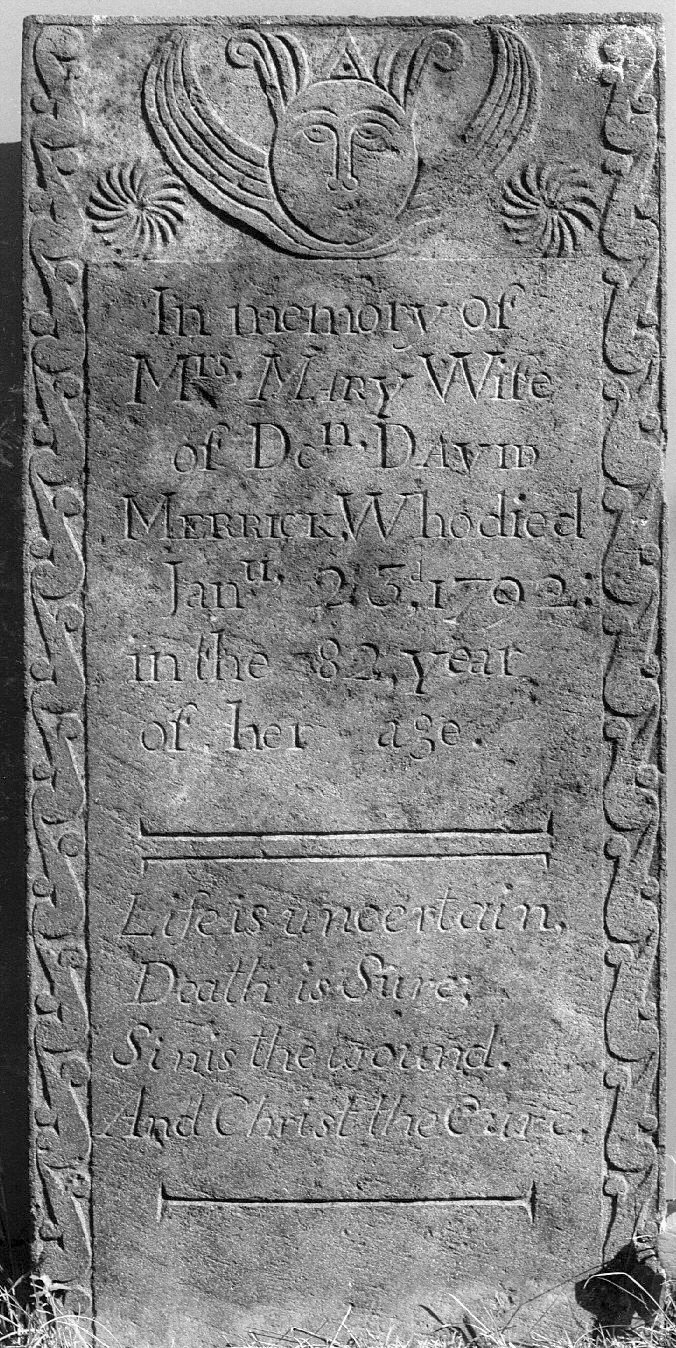 In memory of
Mrs. MARY Wife
of Dcn. DAVID
MERRICK, Who died
Janu. 23d, 1792:
in the 82, year
of her age.
Life is uncertain,
Death is Sure;
Sin is the wound.
And Christ the Cure.